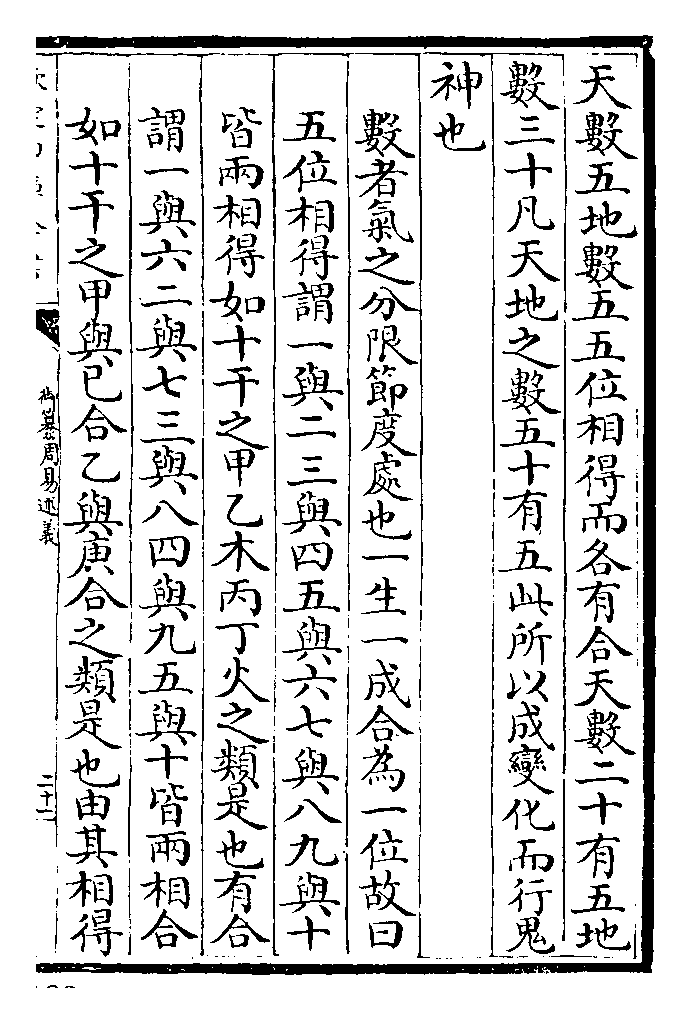 天數五地數五五位相得而各有合天數二十有五地
數三十凡天地之數五十有五此所以成變化而行鬼
神也
數者氣之分限節度處也一生一成合為一位故曰
五位相得謂一與二三與四五與六七與八九與十
皆兩相得如十干之甲乙木丙丁火之類是也有合
謂一與六二與七三與八四與九五與十皆兩相合
如十干之甲與已合乙與庚合之類是也由其相得
御纂周易述義